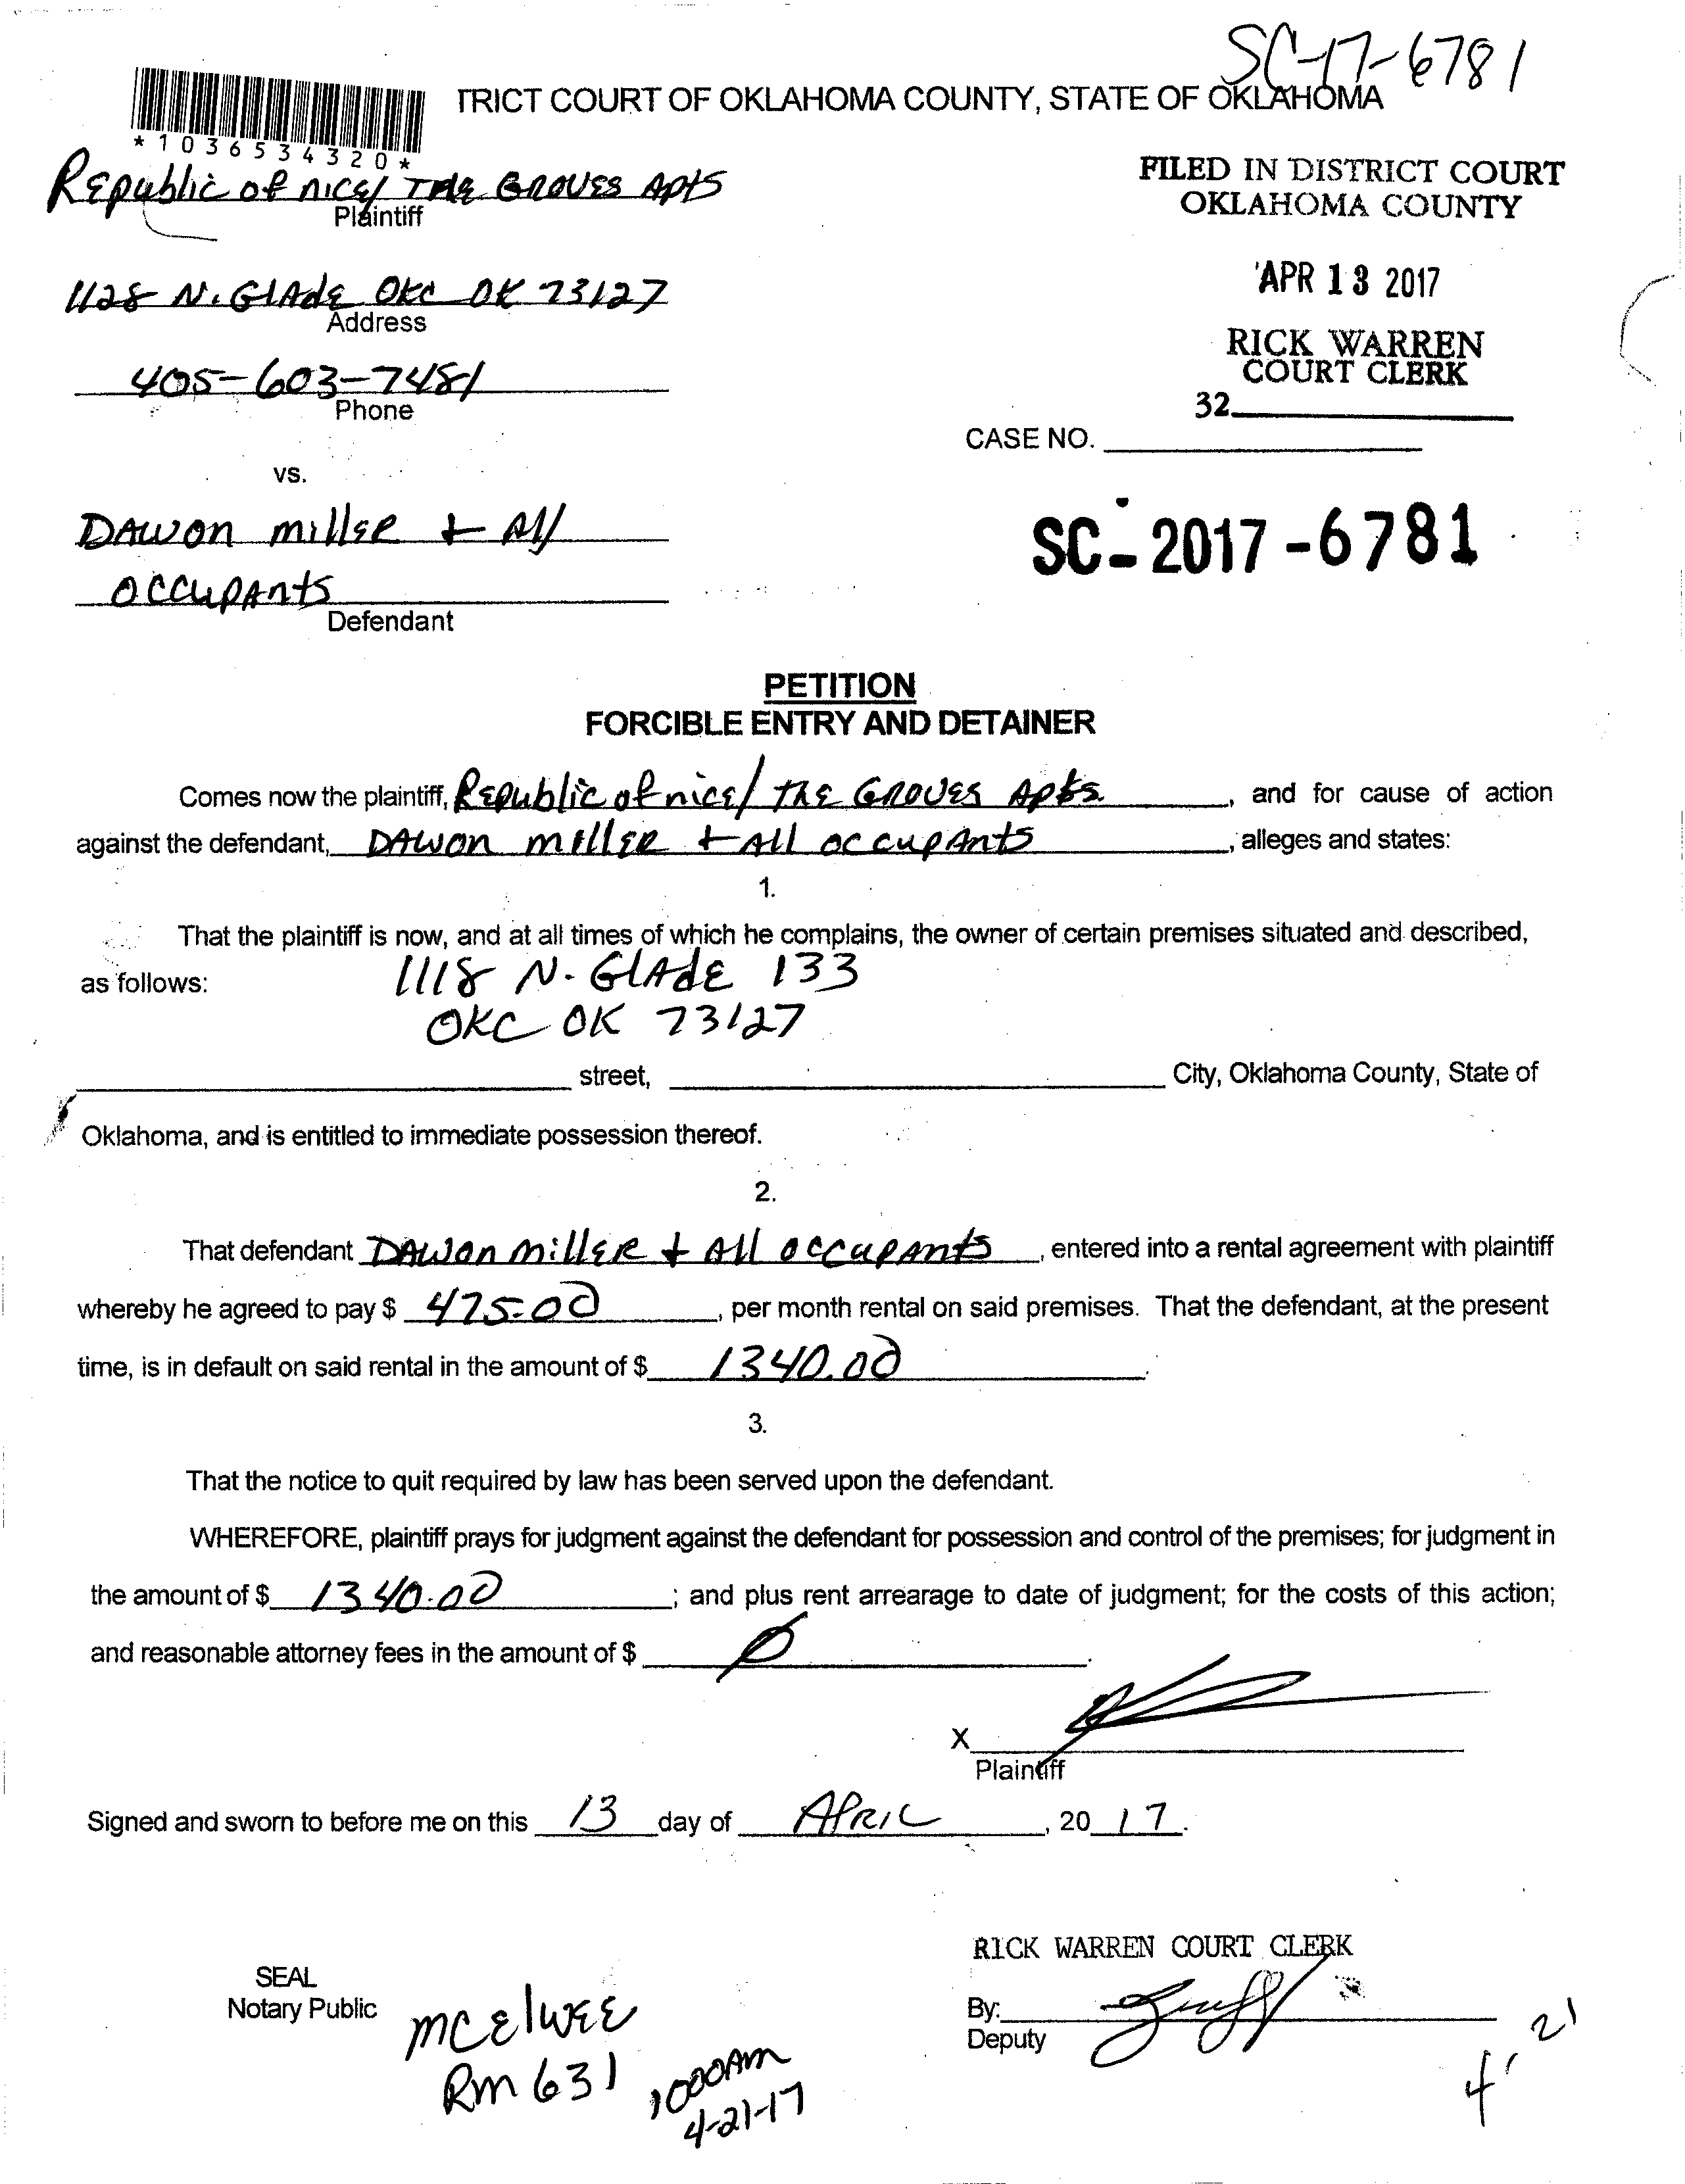 SC-17-6781
TRICT COURT OF OKLAHOMA COUNTY, STATE OF OKLAHOMA
*1036534320*
Republic of nice/ THE GROVES Apts
Plaintiff
FILED IN DISTRICT COURT
OKLAHOMA COUNTY
1128 N. GLAdE OKC OK 73127
Address
APR 13 2017
RICK WARREN
COURT CLERK
405-603-7481
Phone
32
CASE NO.
vs.
DAWON millER + All
OCCUPANtS
Defendant
SC-2017-6781
PETITION
FORCIBLE ENTRY AND DETAINER
Comes now the plaintiff, REpublic of nice/ thE GROVES Apts. , and for cause of action
against the defendant, DAWON millER + All occupAntS , alleges and states:
1.
That the plaintiff is now, and at all times of which he complains, the owner of certain premises situated and described,
as follows: 1118 N. GLAdE 133
OKC OK 73127
street, City, Oklahoma County, State of
Oklahoma, and is entitled to immediate possession thereof.
2.
That defendant DAWON millER + All occupAntS , entered into a rental agreement with plaintiff
whereby he agreed to pay $ 475.00 , per month rental on said premises. That the defendant, at the present
time, is in default on said rental in the amount of $ 1340.00 .
3.
That the notice to quit required by law has been served upon the defendant.
WHEREFORE, plaintiff prays for judgment against the defendant for possession and control of the premises; for judgment in
the amount of $ 1340.00 ; and plus rent arrearage to date of judgment; for the costs of this action;
and reasonable attorney fees in the amount of $ Ø .
X
Plaintiff
Signed and sworn to before me on this 13 day of APRIL , 20 17 .
RICK WARREN COURT CLERK
SEAL
Notary Public
By:
Deputy
mcElwEE
Rm 631
1000Am
4-21-17
4' 21